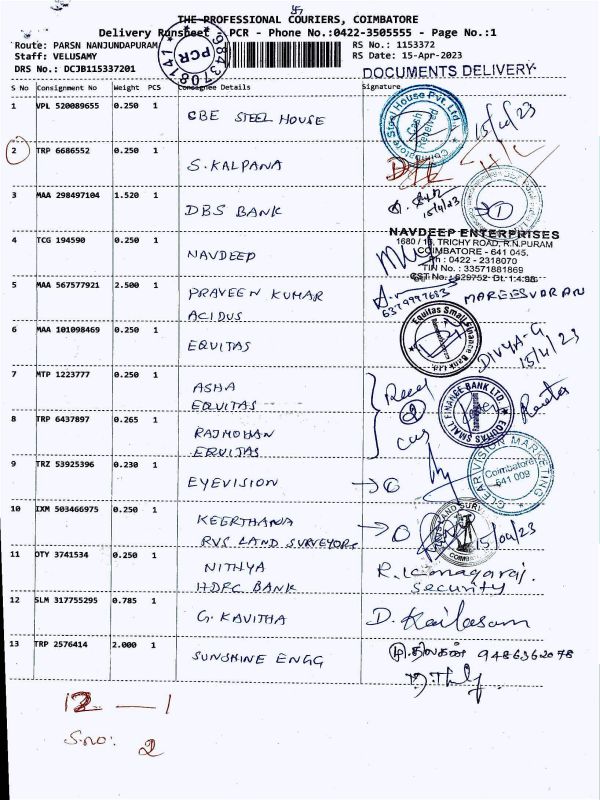 THE PROFESSIONAL COURIERS, COIMBATORE
Delivery Runsheet - PCR - Phone No.:0422-3505555 - Page No.:1
Route: PARSN NANJUNDAPURAM
Staff: VELUSAMY
DRS No.: DCJB115337201
PCR
9843708141
RS No.: 1153372
RS Date: 15-Apr-2023
DOCUMENTS DELIVERY
S No Consignment No Weight PCS Consignee Details Signature
1 VPL 520089655 0.250 1 CBE STEEL HOUSE
Coimbatore Steel House Pvt. Ltd
Cash Received
15/4/23
2 TRP 6686552 0.250 1 S. KALPANA
3 MAA 298497104 1.520 1 DBS BANK
15/4/23
4 TCG 194590 0.250 1 NAVDEEP
NAVDEEP ENTERPRISES
1680 / 16, TRICHY ROAD, R.N.PURAM
COIMBATORE - 641 045.
Ph : 0422 - 2318070
TIN No. : 33571881869
CST No. : 629752 Dt. 1.4.98
5 MAA 567577921 2.500 1 PRAVEEN KUMAR
ACIDUS
6379997683 MAREESVORAN
6 MAA 101098469 0.250 1 EQUITAS
Equitas Small Finance Bank Ltd
DIVYA-G
15/4/23
7 MTP 1223777 0.250 1 ASHA
EQUITAS
8 TRP 6437897 0.265 1 RAJMOHAN
EQUITAS
2
EQUITAS SMALL FINANCE BANK LTD
9 TRZ 53925396 0.230 1 EYEVISION
CLEAR VISION MARKETING
Coimbatore
641 009
10 IXM 503466975 0.250 1 KEERTHANA
RVS LAND SURVEYORS
15/04/23
11 OTY 3741534 0.250 1 NITHYA
HDFC BANK
R. Kanagaraj.
Security
12 SLM 317755295 0.785 1 G. KAVITHA
D. Kailasam
13 TRP 2576414 2.000 1 SUNSHINE ENGG
9486362078
12 — 1
S.no: 2